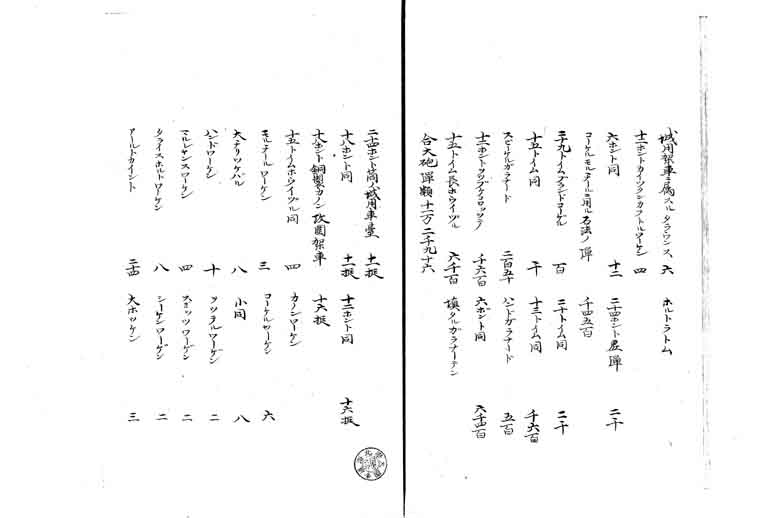 城用架車ニ属スルタラワンス 六 ホルトラトム
十二ホントカイソクンカフトルワーケン 四
六ホント同 十二 二十四ホント在弾 二千
コーケルモルチールニ用ル石法ノ弾 千四五百
二十九トイムブランドコーケル 百 二十トイム同 二千
十五トイム同 二千 十三トイム同 千六百
スピーゲルガラナード 二百五十 ハンドガラナード 五百
千六百 六ホント同 六千四百
十五トイム長ホウイッヅル 六千百 填タルガラナーテン
合大砲弾類十二万二千九十六
二十四ホント筒ノ城用車臺 十二挺
十八ホント同 十二挺 十二ホント同 十六挺
十八ホント銅製カノン攻圍架車 十六挺
十五トイムホウイッヅル同 四 カノンワーケン
モルチールワーケン 三 コーケルワーケン 六
大チリツケバル 八 小同 八
ハンドワーケン 十 フツラルワーゲン 二
マルレヤンスワーケン 四 スミッツワーゲン 二
クライスホルトワーケン 八 シーケンワーゲン 二
アールドカイント 二十四 大ホツケン 三